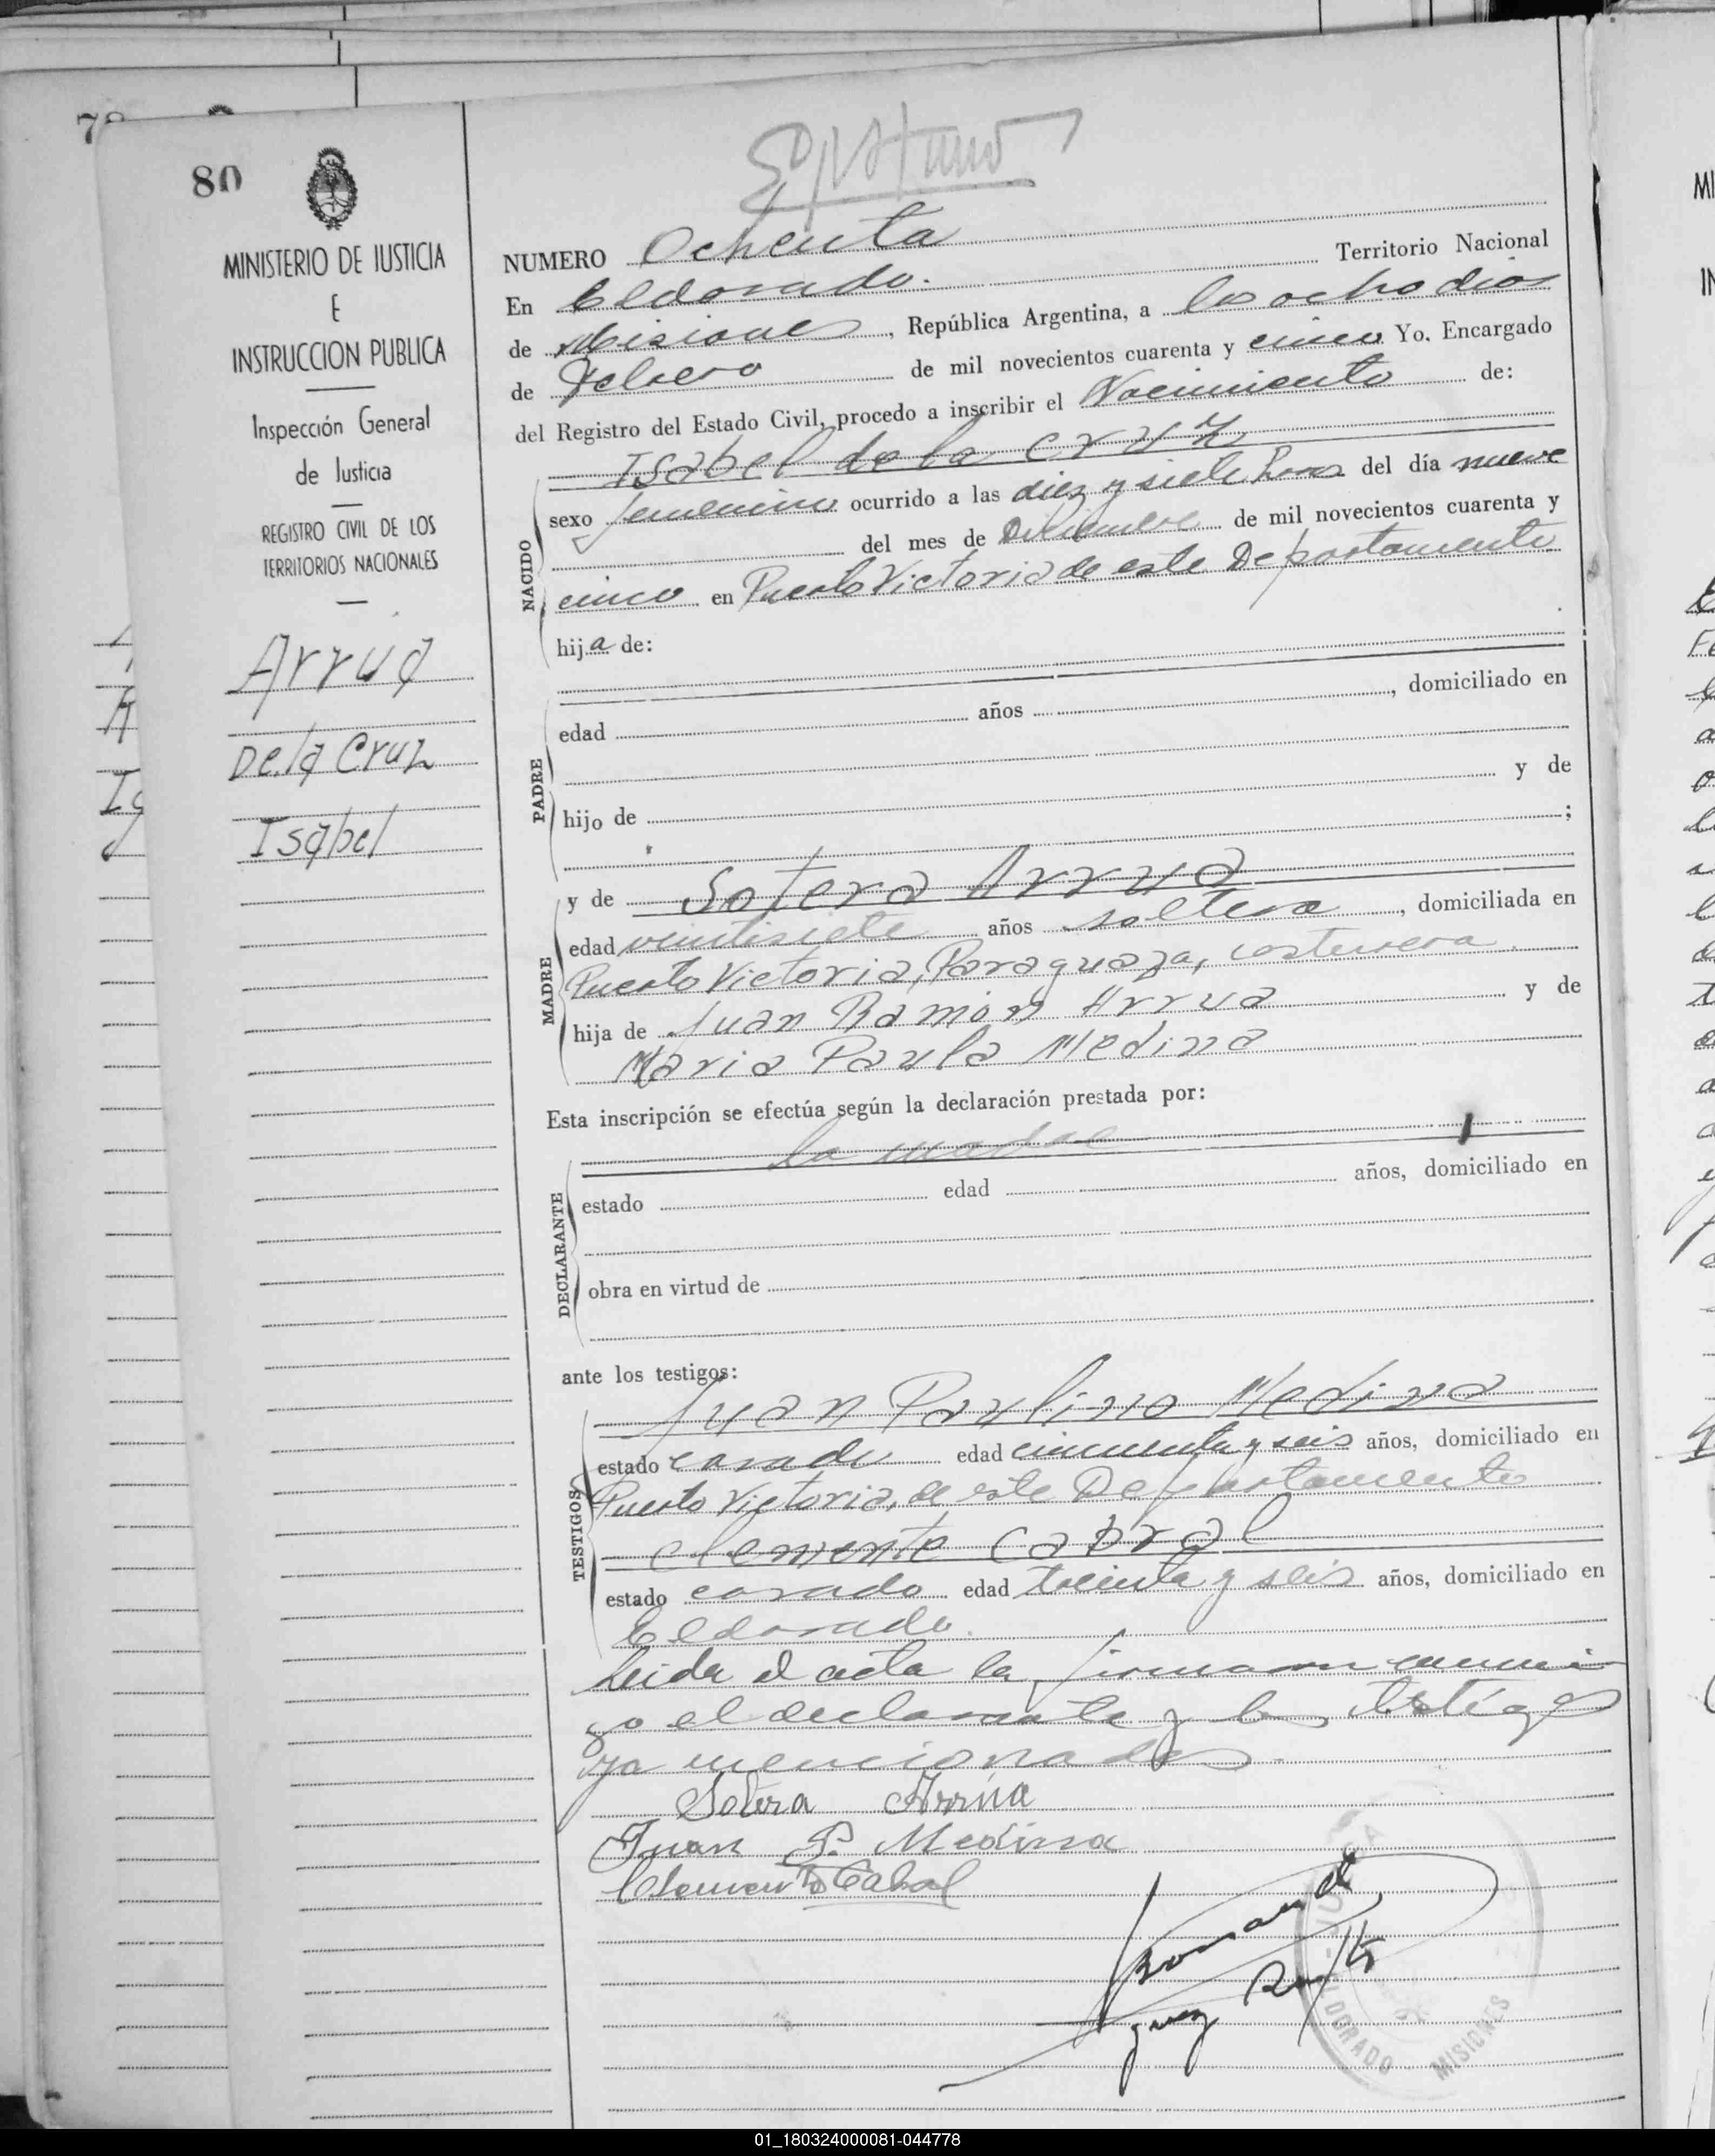 80
MINISTERIO DE JUSTICIA
E
INSTRUCCION PUBLICA
Inspección General
de Justicia
REGISTRO CIVIL DE LOS
TERRITORIOS NACIONALES
Arrua
De la Cruz
Isabel
NUMERO Ochenta
En Eldorado. Territorio Nacional
de Misiones, República Argentina, a los ocho dias
de Febrero de mil novecientos cuarenta y cinco Yo. Encargado
del Registro del Estado Civil, procedo a inscribir el Nacimiento de:
Isabel de la Cruz
NACIDO
sexo femenino ocurrido a las diez y siete horas del día nueve
del mes de Diciembre de mil novecientos cuarenta y
cinco en Puerto Victoria de este Departamento
hija de:
PADRE
edad años , domiciliado en
y de
hijo de
;
y de Sotera Arrua
MADRE
edad veintisiete años soltera, domiciliada en
Puerto Victoria, Paraguaya, costurera
hija de Juan Ramón Arrua y de
Maria Paula Medina
Esta inscripción se efectúa según la declaración prestada por:
la madre
DECLARANTE
estado edad años, domiciliado en
obra en virtud de
ante los testigos:
Juan Paulino Medina
TESTIGOS
estado casado edad cincuenta y seis años, domiciliado en
Puerto Victoria, de este Departamento
Clemente Cabral
estado casado edad treinta y seis años, domiciliado en
Eldorado.
Leida el acta la firmaron conmi
go el declarante y los testigos
ya mencionados.
Sotera Arrúa
Juan P. Medina
Clemente Cabral
ELDORADO MISIONES
01_180324000081-044778